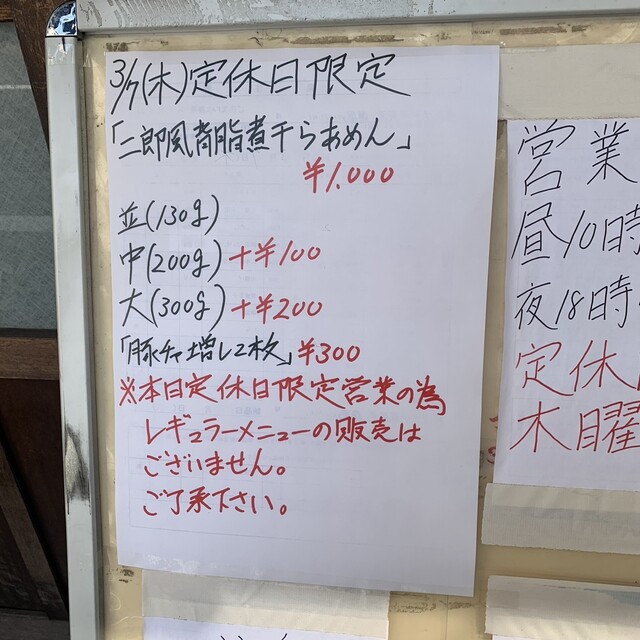 3/7(木)定休日限定
「二郎風背脂煮干らあめん」
¥1.000
並(130g)
中(200g)+¥100
大(300g)+¥200
「豚チャ増し2枚」¥300
※本日定休日限定営業の為
レギュラーメニューの販売は
ございません。
ご了承下さい。
営業
昼10時
夜18時
定休
木曜